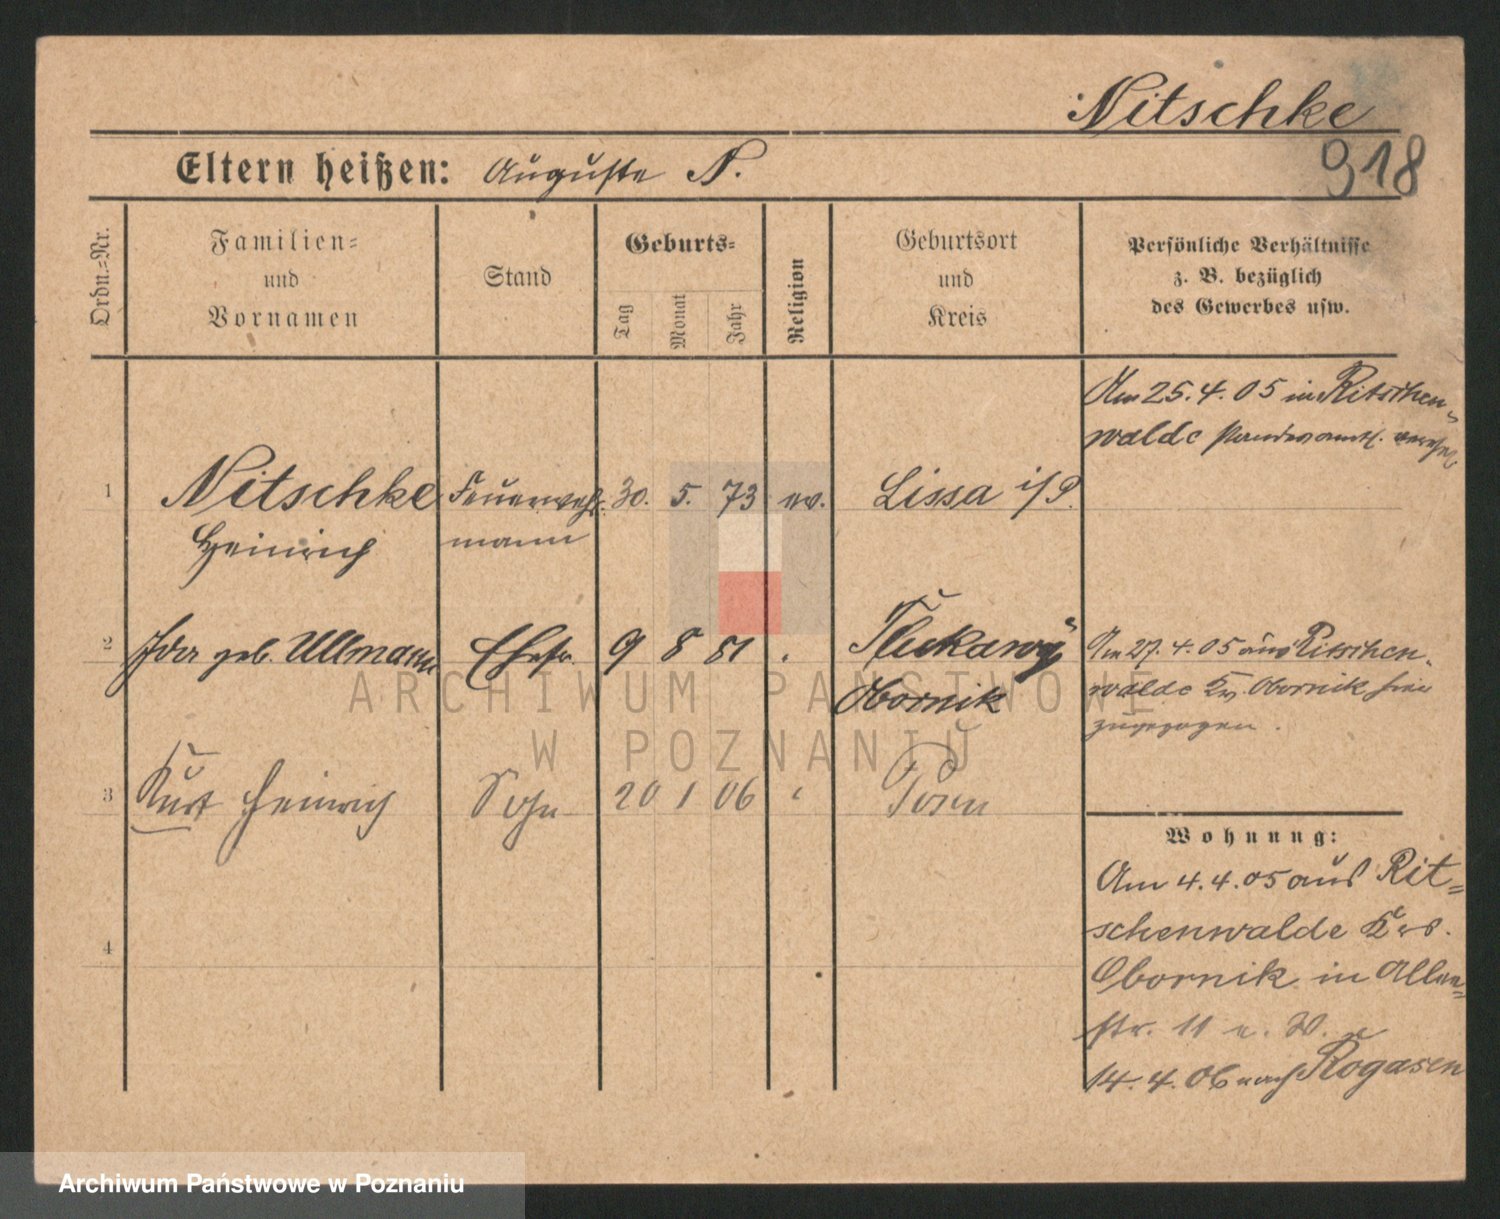 Nitschke
918
Eltern heißen: Auguste N.
Ordn.-Nr.
Familien-
und
Vornamen
Stand
Geburts-
Tag
Monat
Jahr
Religion
Geburtsort
und
Kreis
Persönliche Verhältnisse
z. B. bezüglich
des Gewerbes usw.
Am 25. 4. 05 in Ritschen-
walde standesamtl.
1 Nitschke Feuerwehr- 30. 5. 73 ev. Lissa i/P.
Heinrich mann
2 Ida geb. Ullmann Ehefr. 9 8 81
Obornik
Am 27. 4. 05 aus Ritschen-
walde Kr. Obornik hier
zugezogen.
3 Kurt Heinrich Sohn 20 1 06 " Posen
4
Wohnung:
Am 4. 4. 05 aus Rit-
schenwalde Krs.
Obornik in
str. 11
14. 4. 06 nach Rogasen
ARCHIWUM PAŃSTWOWE
W POZNANIU
Archiwum Państwowe w Poznaniu